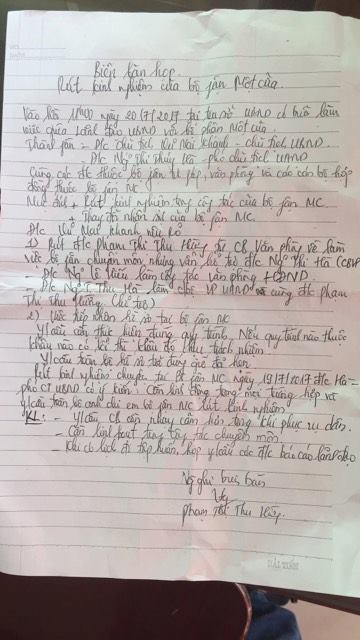 Biên bản họp
Rút kinh nghiệm của bộ phận Một cửa.
Vào hồi 14h00 ngày 20/7/2017 tại trụ sở UBND có buổi làm
việc giữa lãnh đạo UBND với bộ phận Một cửa.
Thành phần = Đ/c Chủ tịch Khanh - Chủ tịch UBND.
- Đ/c Ngô Thị Thủy Hà phó chủ tịch UBND
Cùng các đ/c thuộc bộ phận tư pháp, văn phòng và các cán bộ hợp
đồng thuộc bộ phận MC
Mục đích + Rút kinh nghiệm trong công tác của bộ phận MC.
+ Thay đổi nhân sự của bộ phận MC.
Đ/c Khanh nêu rõ
1) Rút đ/c Phạm Thị Thu Hằng từ CB Văn phòng về làm
việc bộ phận chuyên môn, nhưng vẫn hỗ trợ đ/c Ngô Thị Hà (CBVP
- Đ/c Ngô làm công tác văn phòng HĐND.
- Đ/c Ngô T Thu Hà làm VP UBND và cùng đ/c Phạm
Thị Thu Hằng (hỗ trợ)
2) Việc tiếp nhận hồ sơ tại bộ phận MC
Y/cầu cần thực hiện đúng quy trình. Nếu quy trình nào thuộc
khâu nào có thì khâu đó chịu trách nhiệm
Y/cầu toàn bộ hồ sơ
Rút kinh nghiệm chuyện tại BP phận MC ngày 19/7/2017 đ/c Hà =
phó CT UBND có ý kiến: Cần linh động trong mọi trường hợp và
y/cầu toàn bộ anh chị em bộ phận MC rút kinh nghiệm
KL: - Y/cầu CB cần nhạy cảm hơn trong khi phục vụ dân.
- Cần linh hoạt trong công tác chuyên môn
- Khi có lịch đi tập huấn, họp y/cầu các đ/c báo cáo lãnh đạo
Người ghi biên bản
Phạm Thị Thu Hằng.
HẢI TIẾN